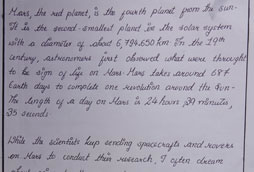 Mars, the red planet, is the fourth planet from the sun.
It is the second smallest planet in the solar system
with a diameter of about 6,794.650 km. In the 19th
century, astronomers first observed what were thought
to be sign of life on Mars. Mars takes around 687
Earth days to complete one revolution around the Sun.
The length of a day on Mars is 24 hours 39 minutes,
35 seconds.
While the scientists keep sending spacecrafts and rovers
on Mars to conduct their research, I often dream